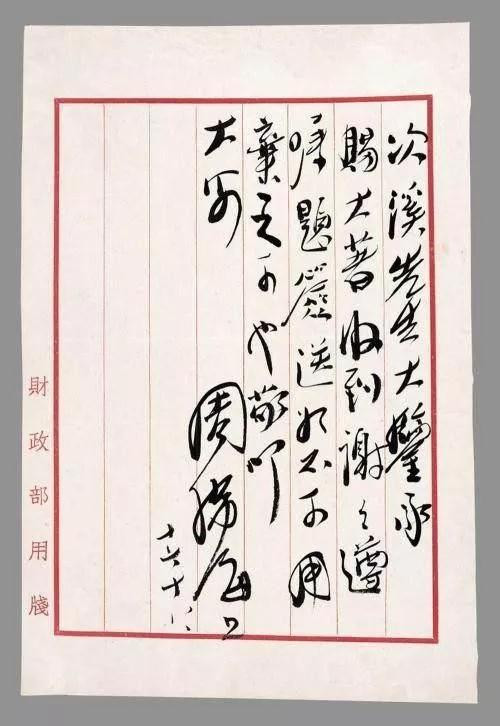 次溪先生大鑒承
賜大著收到謝々遵
嘱題簽送如不可用
棄之可也敬叩
大安
周佛海
財政部用牋